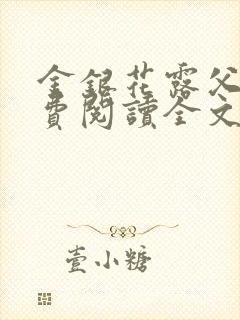 金銀花露父
費閱讀全文
壹小糖